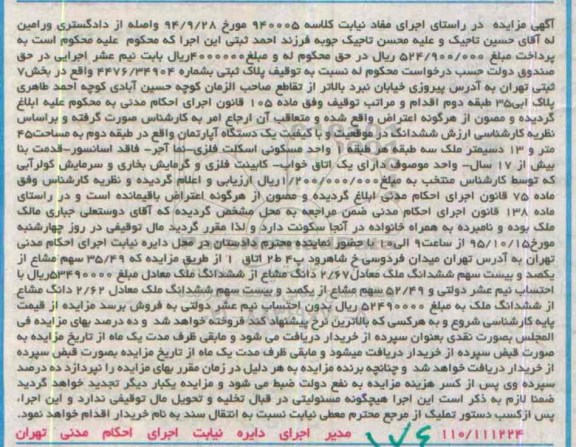 آگهی مزایده در راستای اجرای مفاد نیابت کلاسه ۹۴۰۰۰۵ مورخ ۹۴/۹/۲۸ واصله از دادگستری ورامین
له آقای حسین تاجیک و علیه محسن تاجیک جوبه فرزند احمد ثبتی این اجرا که محکوم علیه محکوم است به
پرداخت مبلغ ۵۲۴/۹۰۰/۰۰۰ ریال در حق محکوم له و مبلغ ۴۰۰۰۰۰۰ریال بابت نیم عشر اجرایی در حق
صندوق دولت حسب درخواست محکوم له نسبت به توقیف پلاک ثبتی بشماره ۴۴۷۶/۳۴۹۰۴ واقع در بخش۷
ثبتی تهران به آدرس پیروزی خیابان نبرد بالاتر از تقاطع صاحب الزمان کوچه حسین آبادی کوچه احمد طاهری
پلاک ابی۳۵ طبقه دوم اقدام و مراتب توقیف وفق ماده ۱۰۵ قانون اجرای احکام مدنی به محکوم علیه ابلاغ
گردیده و مصون از هرگونه اعتراض واقع شده و متعاقب آن ارجاع امر به کارشناس صورت گرفته و براساس
نظریه کارشناسی ارزش ششدانگ در موقعیت و با کیفیت یک دستگاه آپارتمان واقع در طبقه دوم به مساحت۴۵
متر و ۱۳ دسیمتر ملک سه طبقه هر طبقه ۱ واحد مسکونی اسکلت فلزی-نما آجر- فاقد اسانسور-قدمت بنا
بیش از ۱۷ سال- واحد موصوف دارای یک اتاق خواب- کابینت فلزی و گرمایش بخاری و سرمایش کولرآبی
که توسط کارشناس منتخب به مبلغ۱/۲۰۰/۰۰۰/۰۰۰ریال ارزیابی و اعلام گردیده و نظریه کارشناس وفق
ماده ۷۵ قانون اجرای احکام مدنی ابلاغ گردیده و مصون از هرگونه اعتراض باقیمانده است و در راستای
ماده ۱۳۸ قانون اجرای احکام مدنی ضمن مراجعه به محل مشخص گردیده که آقای دوستعلی جباری مالک
ملک بوده و نامبرده به همراه خانواده در آنجا سکونت دارد و لذا مقرر گردید مال توقیفی در روز چهارشنبه
مورخ۹۵/۱۰/۱۵ از ساعت۹ الی۱۰ با حضور نماینده محترم دادستان در محل دایره نیابت اجرای احکام مدنی
تهران به آدرس تهران میدان فردوسی خ شاهرود پ۴ ط۲ اتاق ۱ از طریق مزایده که ۳۵/۴۹ سهم مشاع از
یکصد و بیست سهم ششدانگ ملک معادل۲/۶۷ دانگ مشاع از ششدانگ ملک معادل مبلغ ۵۳۴۹۰۰۰۰ریال با
احتساب نیم عشر دولتی و ۵۲/۴۹ سهم مشاع از یکصد و بیست سهم ششدانگ ملک معادل ۲/۶۲ دانگ مشاع
از ششدانگ ملک به مبلغ ۵۲۴۹۰۰۰۰ ریال بدون احتساب نیم عشر دولتی به فروش برسد مزایده از قیمت
پایه کارشناسی شروع و به هرکسی که بالاترین نرخ پیشنهاد کند فروخته خواهد شد و ده درصد بهای مزایده فی
المجلس بصورت نقدی بعنوان سپرده از خریدار دریافت می شود و مابقی ظرف مدت یک ماه از تاریخ مزایده به
صورت قبض سپرده از خریدار دریافت میشود و مابقی ظرف مدت یک ماه از تاریخ مزایده بصورت قبض سپرده
از خریدار دریافت خواهد شد و چنانچه برنده مزایده به هر دلیل در زمان مقرر بهای مزایده را نپردازد ده درصد
سپرده وی پس از کسر هزینه مزایده به نفع دولت ضبط می شود و مزایده یکبار دیگر تجدید خواهد گردید
ضمنا لازم به ذکر است این اجرا هیچگونه مسئولیتی در قبال تخلیه و تحویل مال توقیفی ندارد و این اجرا،
پس ازکسب دستور تملیک از مرجع محترم معطی نیابت نسبت به انتقال سند به نام خریدار اقدام خواهد نمود.
۱۱۰/۱۱۱۲۲۴ مدیر اجرای دایره نیابت اجرای احکام مدنی تهران